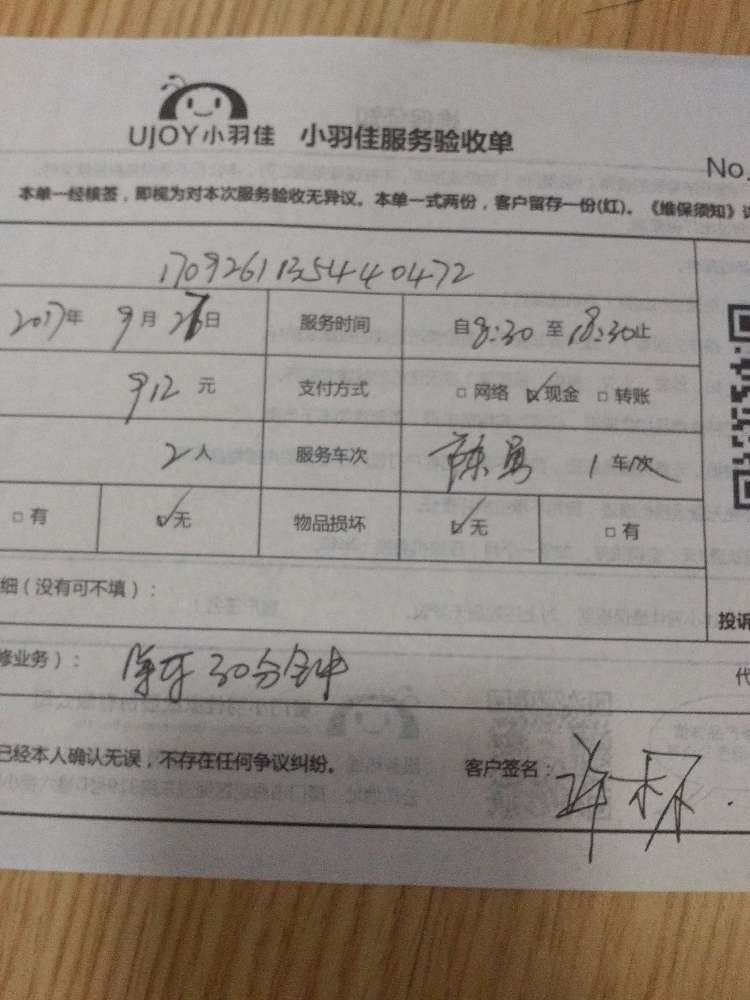 UJOY小羽佳 小羽佳服务验收单
No.
本单一经核签，即视为对本次服务验收无异议。本单一式两份，客户留存一份(红)。《维保须知》
170926113544 40472
2017年 9月 26日 服务时间 自8:30 至18:30止
912 元 支付方式 □ 网络 ☑现金 □ 转账
2人 服务车次 1 车/次
□ 有 ☑无 物品损坏 ☑无 □ 有
细（没有可不填）：
投诉
修业务）： 30分钟
代
已经本人确认无误，不存在任何争议纠纷。 客户签名：